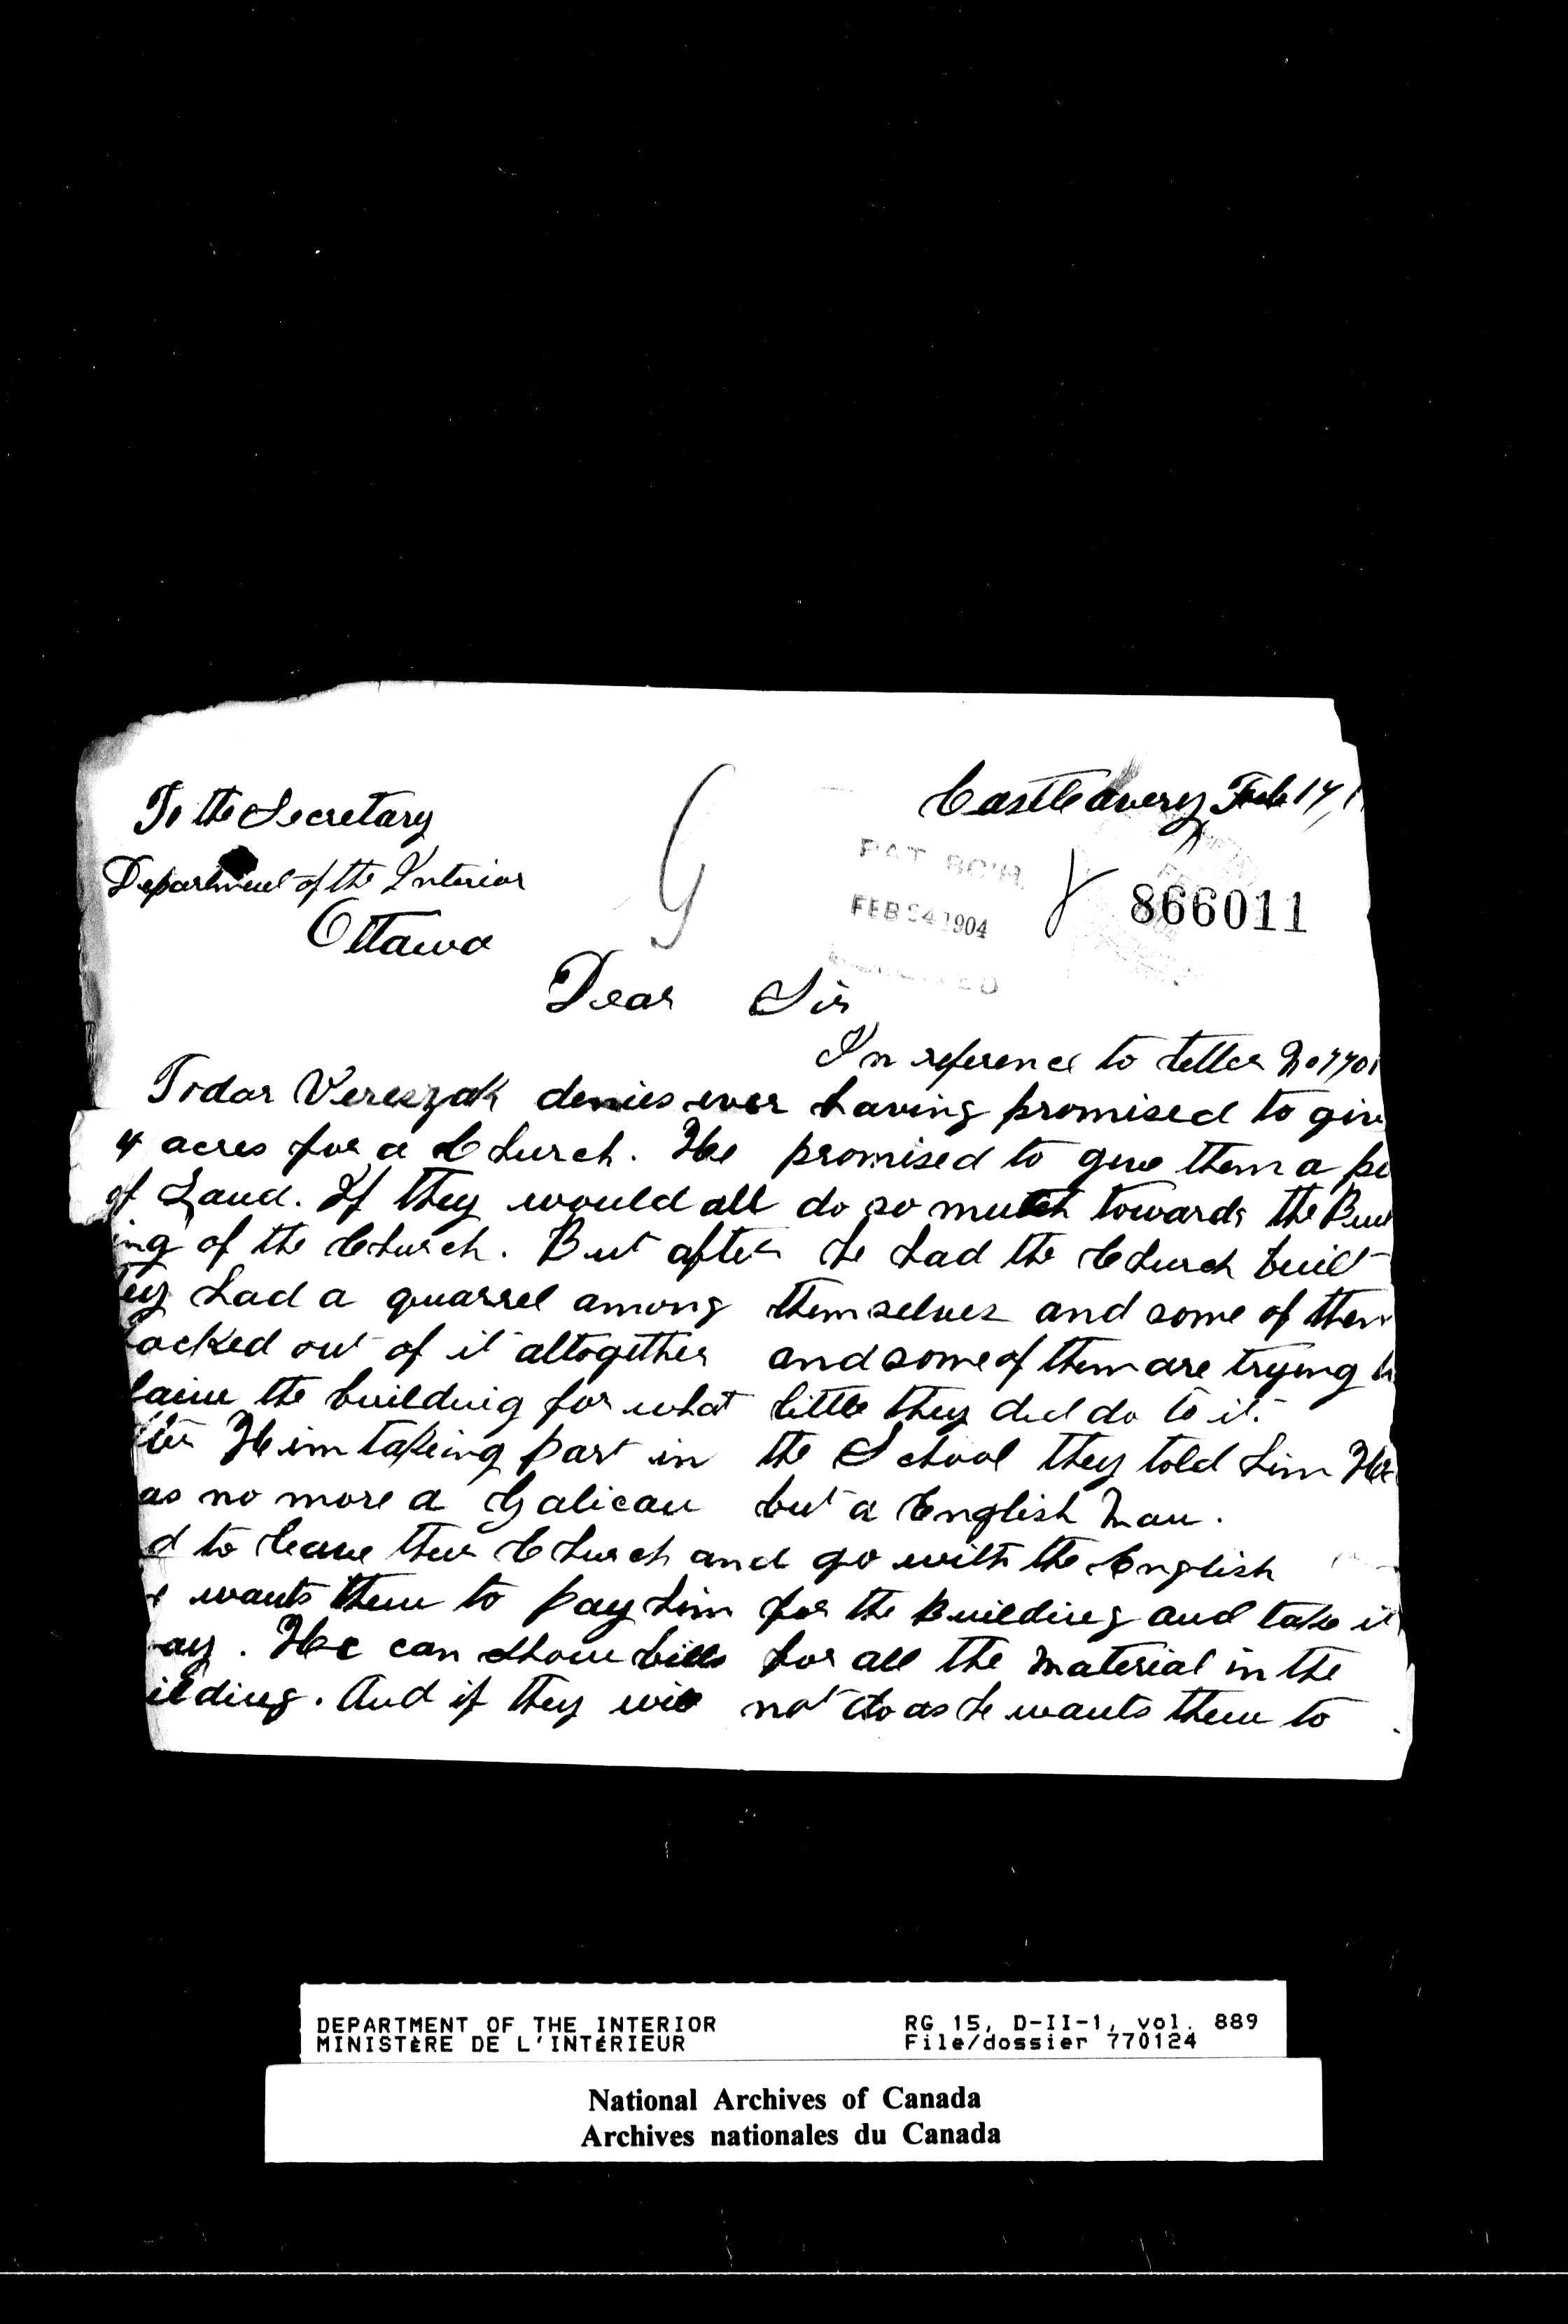 To the Secretary
Castleavery Feb 17, 1
Department of the Interior
Ottawa
G
FEB 24 1904
866011
Dear Sir
In reference to letter No 7701
Todar Vereszak denies ever having promised to giv
4 acres for a Church. He promised to give them a pi
of Land. If they would all do so much towards the Buil
ing of the Church. But after he had the Church built
ey had a quarrel among themselves and some of them
ocked out of it altogether and some of them are trying to
laim the building for what little they did do to it.
ter Him takeing part in the School they told him He
as no more a Galican but a English Man.
d to leave thee Church and go with the English
e wants them to pay him for the Building and take it
ay. He can show bills for all the Material in the
ilding. And if they will not do as he wants them to
DEPARTMENT OF THE INTERIOR
MINISTÈRE DE L'INTÉRIEUR
RG 15, D-II-1, vol. 889
File/dossier 770124
National Archives of Canada
Archives nationales du Canada